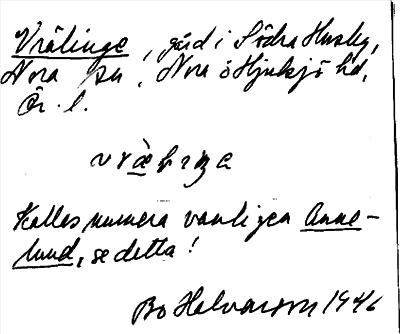 Vrålinge, gård i Södra Husby,
Nora sn, Nora ö Hjulsjö hd,
Ör. l.
Kallas numera vanligen Anne-
lund, se detta!
Bo Halvarson 1946